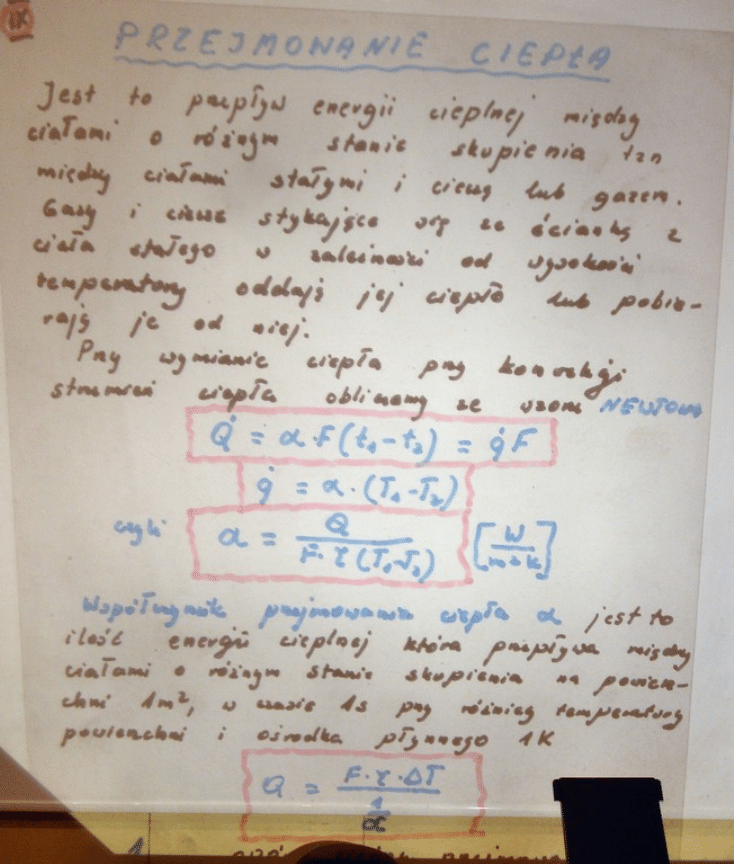 IX
PRZEJMOWANIE CIEPŁA
Jest to przepływ energii cieplnej między
ciałami o różnym stanie skupienia tzn
między ciałami stałymi i cieczą lub gazem.
Gazy i ciecze stykające się ze ścianką z
ciała stałego w zależności od wysokości
temperatury oddają jej ciepło lub pobie-
rają je od niej.
Przy wymianie ciepła przy konwekcji
strumień ciepła obliczamy ze wzoru NEWTONA
Q̇ = α·F(t₁-t₂) = q̇ F
q̇ = α·(T₁-T₂)
czyli α = Q / F·τ(T₁-T₂) [W / m²K]
Współczynnik przejmowania ciepła α jest to
ilość energii cieplnej która przepływa między
ciałami o różnym stanie skupienia na powierz-
chni 1m², w czasie 1s przy różnicy temperatury
powierzchni i ośrodka płynnego 1K
Q = F·τ·ΔT / 1/α
1